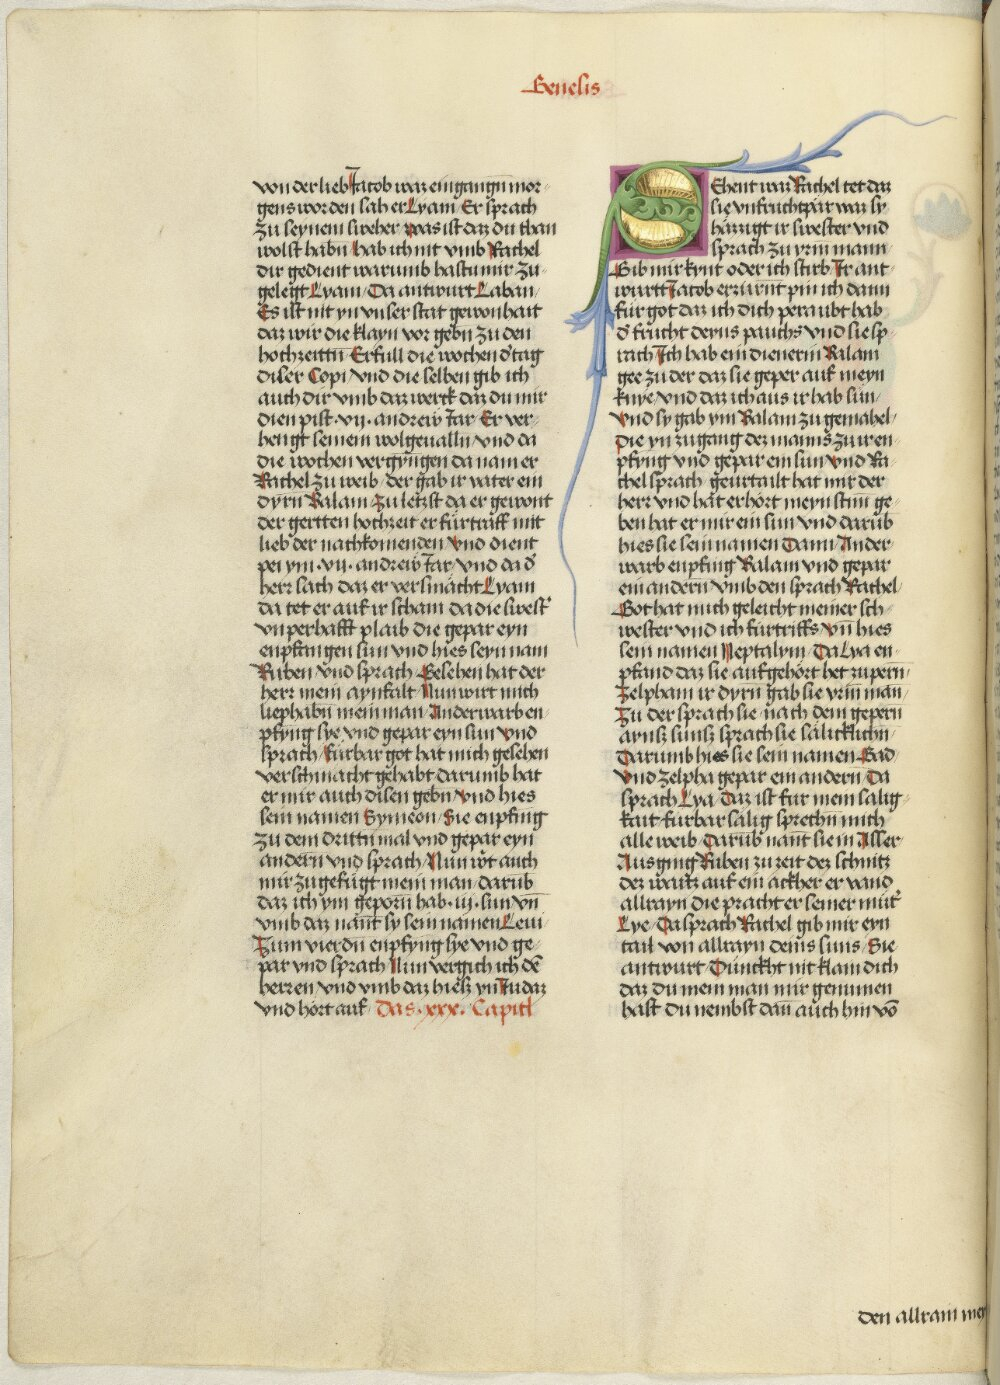 Genesis
von der lieb Jacob waz eingangn mor-
gens worden sah er Lyam Er sprach
zu seynem sweher was ist daz du than
wolst habn hab ich nit vmb Rachel
dir gedient warumb hastu mir zu-
gelegt Lyam Da antwurt Laban
Es ist nit yn vnser stat gewonhait
daz wir die klayn vor gebn zu den
hochzeittn Erfull die wochen d tag
diser Copi vnd die selben gib ich
auch dir vmb daz werck daz du mir
dien pist vij andrew Jar Er ver-
hengt seinem wolgevalln vnd da
die wochen vergyngen da nam er
Rachel zu weib der gab ir vater ein
dyrn Balam zu letzst da er gewont
der gertten hochzeit er furtraff mit
lieb der nachkomenden vnd dient
pei ym vij andrew Jar vnd da d
herr sach daz er versmacht Lyam
da tet er auf ir scham da die swest
vnperhafft plaib die gepar eyn
enpfangen sun vnd hies seyn nam
Ruben vnd sprach Gesehen hat der
herr mein aynfalt Nun wirt mich
liephabn mein man Anderwarb en-
pfyng lye vnd gepar eyn sun vnd
sprach furbar got hat mich gesehen
verschmacht gehabt darumb hat
er mir auch disen gebn vnd hies
sein namen Symeon Sie enpfing
zu dem drittn mal vnd gepar eyn
andern vnd sprach Nun wirt auch
mir zugefugt mein man darub
daz ich ym geporn hab iij sun vnn
vmb daz nannt sy sein namen Leui
Zum vierdn enpfyng lye vnd ge-
par vnd sprach Nun vergich ich dem
herren vnd vmb daz hiesz yn Judaz
vnd hort auf Das xxx Capitl
Sehent waz Rachel tet daz
sie vnfruchtpar waz sy
hazzigt ir swester vnd
sprach zu yrm mann
Gib mir kynt oder ich stirb Ir ant-
wurtt Jacob erzurnt pin ich dann
fur got daz ich dich peraubt hab
d frucht deyns pauchs vnd sie sp-
rach Ich hab ein dienerin Balam
gee zu der daz sie geper auf meyn
knye vnd daz ich aus ir hab sun
vnd sy gab ym Balam zu gemahel
die yn zugang dez manns zu ir en-
pfyng vnd gepar ein sun vnd Ra-
chel sprach geurtailt hat mir der
herr vnd hat erhort meyn stim ge-
ben hat er mir ein sun vnd darub
hies sie sein namen Dann Ander
warb enpfing Balam vnd gepar
ein andern vmb den sprach Rachel
Got hat mich geleicht meiner sch-
wester vnd ich furtriffs vnn hies
sein namen Neptalym Da Lya en-
pfand daz sie aufgehort het zu pern
Zelpham ir dyrn gab sie yrm man
Zu der sprach sie nach dem gepern
aynsz sunsz sprach sie salicklichn
Darumb hies sie sein namen Gad
vnd Zelpha gepar ein andern Da
sprach Lya Daz ist fur mein salig
kait furbar salig sprechn mich
alle weib Darub nant sie in Asser
Ausging Ruben zu zeit dez schnitz
dez waitz auf ein ackher er vand
allrayn die pracht er seiner mut
Lye Da sprach Rachel gib mir eyn
tail von allrayn deins suns Sie
antwurt Dunckht nit klain dich
daz du mein man mir genumen
hast du nembst dan auch hin vo
den allrain mey